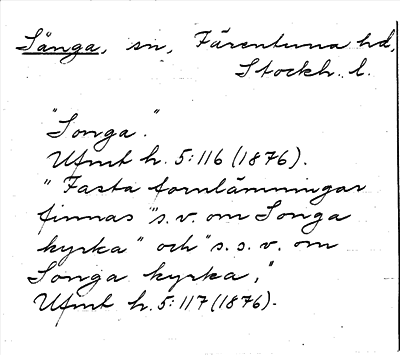 Sånga, sn, Färentuna hd,
Stockh. l.
"Songa."
Ufmt h. 5:116 (1876).
"Fasta fornlämningar
finnas "s.v. om Songa
kyrka" och "s.s.v. om
Songa kyrka,"
Ufmt h. 5:117 (1876).